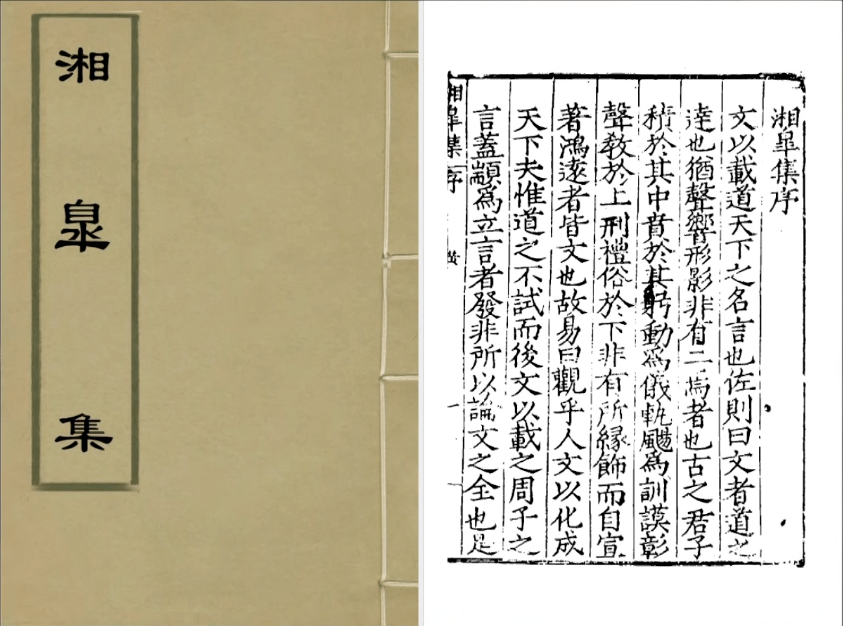 湘皐集
湘皐集序
文以載道天下之名言也佐則曰文者道之
逹也猶聲響形影非有二焉者也古之君子
積於其中音於其躬動爲儀軌颺爲訓謨彰
聲敎於上刑禮俗於下非有所緣飾而自宣
著鴻逺者皆文也故易曰觀乎人文以化成
天下夫惟道之不試而後文以載之周子之
言蓋顓爲立言者發非所以論文之全也是
湘皐集序